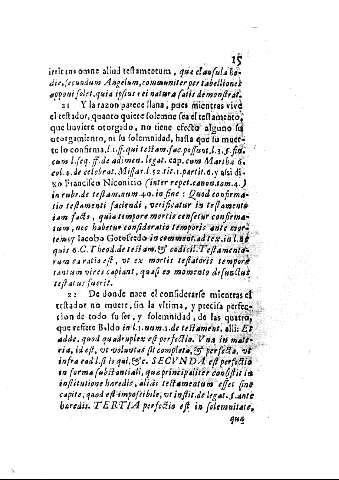 15
irritat omne aliud testamentum, que clausula ho-
die, secundum Angelum, communiter per tabelliones
apponi solet, quia ipsius rei natura satis demonstrat.
21 Y la razon parece llana, pues mientras vive
el testador, quanto quiere solemne sea el testamento,
que huviere otorgado, no tiene efecto alguno su
otorgamiento, ni su solemnidad, hasta que su muer-
te lo confirma, l. 1. ff. qui testam. fac. possunt, l. 3. §. fin.
cum l. seq. ff. de adimen. legat. cap. cum Martha 6.
col. 2. de celebrat. Missar. l. 22. tit. 1. partit. 6. y assi di-
xo Francisco Niconicio (inter repet. canon. tom. 4.)
in rubr. de testam. num. 40. in fine: Quod confirma-
tio testamenti faciendi, verificatur in testamento
iam facto, quia tempore mortis censetur confirma-
tum, nec habetur consideratio temporis ante mor-
tem; y Jacobo Gotofredo in comment. ad tex. in l. ne
quis 6. C. Theod. de testam. & codicil. Testamento-
rum ea ratio est, ut ex mortis testatoris tempore
tantum vires capiant, quasi eo momento defunctus
testatus fuerit.
22 De donde nace el considerarse mientras el
testador no muere, sin la ultima, y precisa perfec-
cion de todo su ser, y solemnidad, de las quatro,
que refiere Baldo in l. 1. num. 1. de testament. alli: Et
adde, quod quadruplex est perfectio. Una in mate-
ria, id est, ut voluntas sit completa, & perfecta, ut
infra ead. l. si is qui, &c. SECUNDA est perfectio
in forma substantiali, quæ principaliter consistit in
institutione hæredis, aliàs testamentum esset sine
capite, quod est impossibile, ut instit. de legat. §. ante
hæredis. TERTIA perfectio est in solemnitate,
quæ